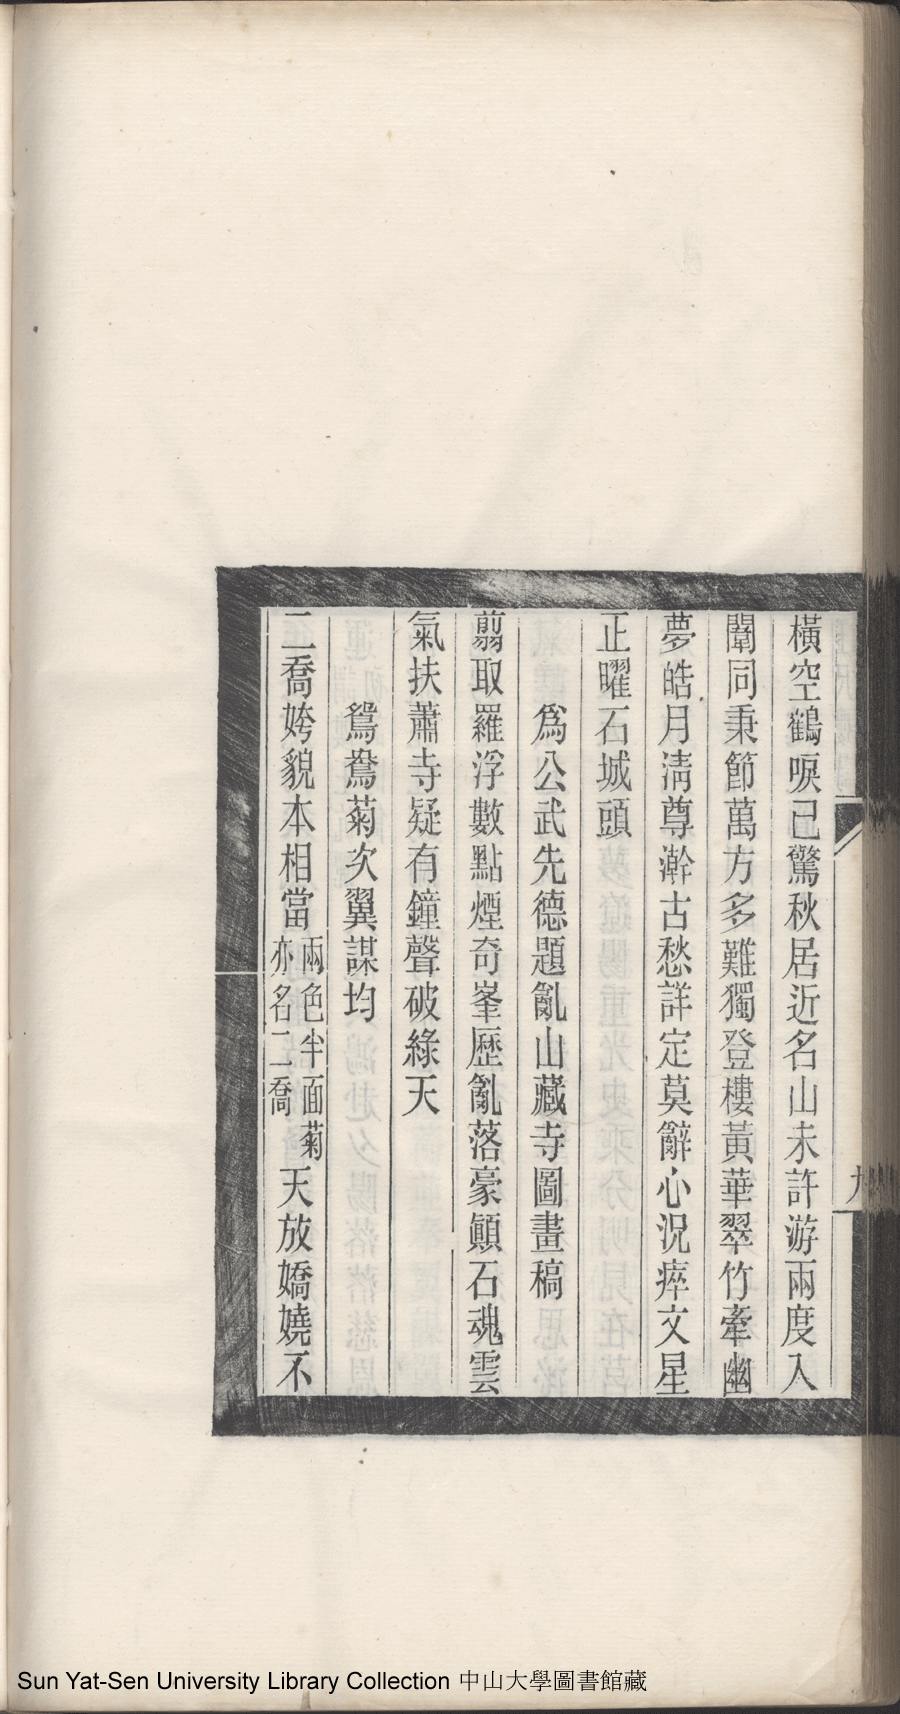 橫空鶴唳已驚秋居近名山未許游兩度入
闈同秉節萬方多難獨登樓黃華翠竹牽幽
夢皓月淸尊澣古愁詳定莫辭心況瘁文星
正曜石城頭
爲公武先德題亂山藏寺圖畫稿
翦取羅浮數點煙奇峯歷亂落豪顚石魂雲
氣扶蕭寺疑有鐘聲破綠天
鴛鴦菊次翼謀均
二喬姱貌本相當兩色半面菊亦名二喬天放嬌嬈不
九
Sun Yat-Sen University Library Collection 中山大學圖書館藏